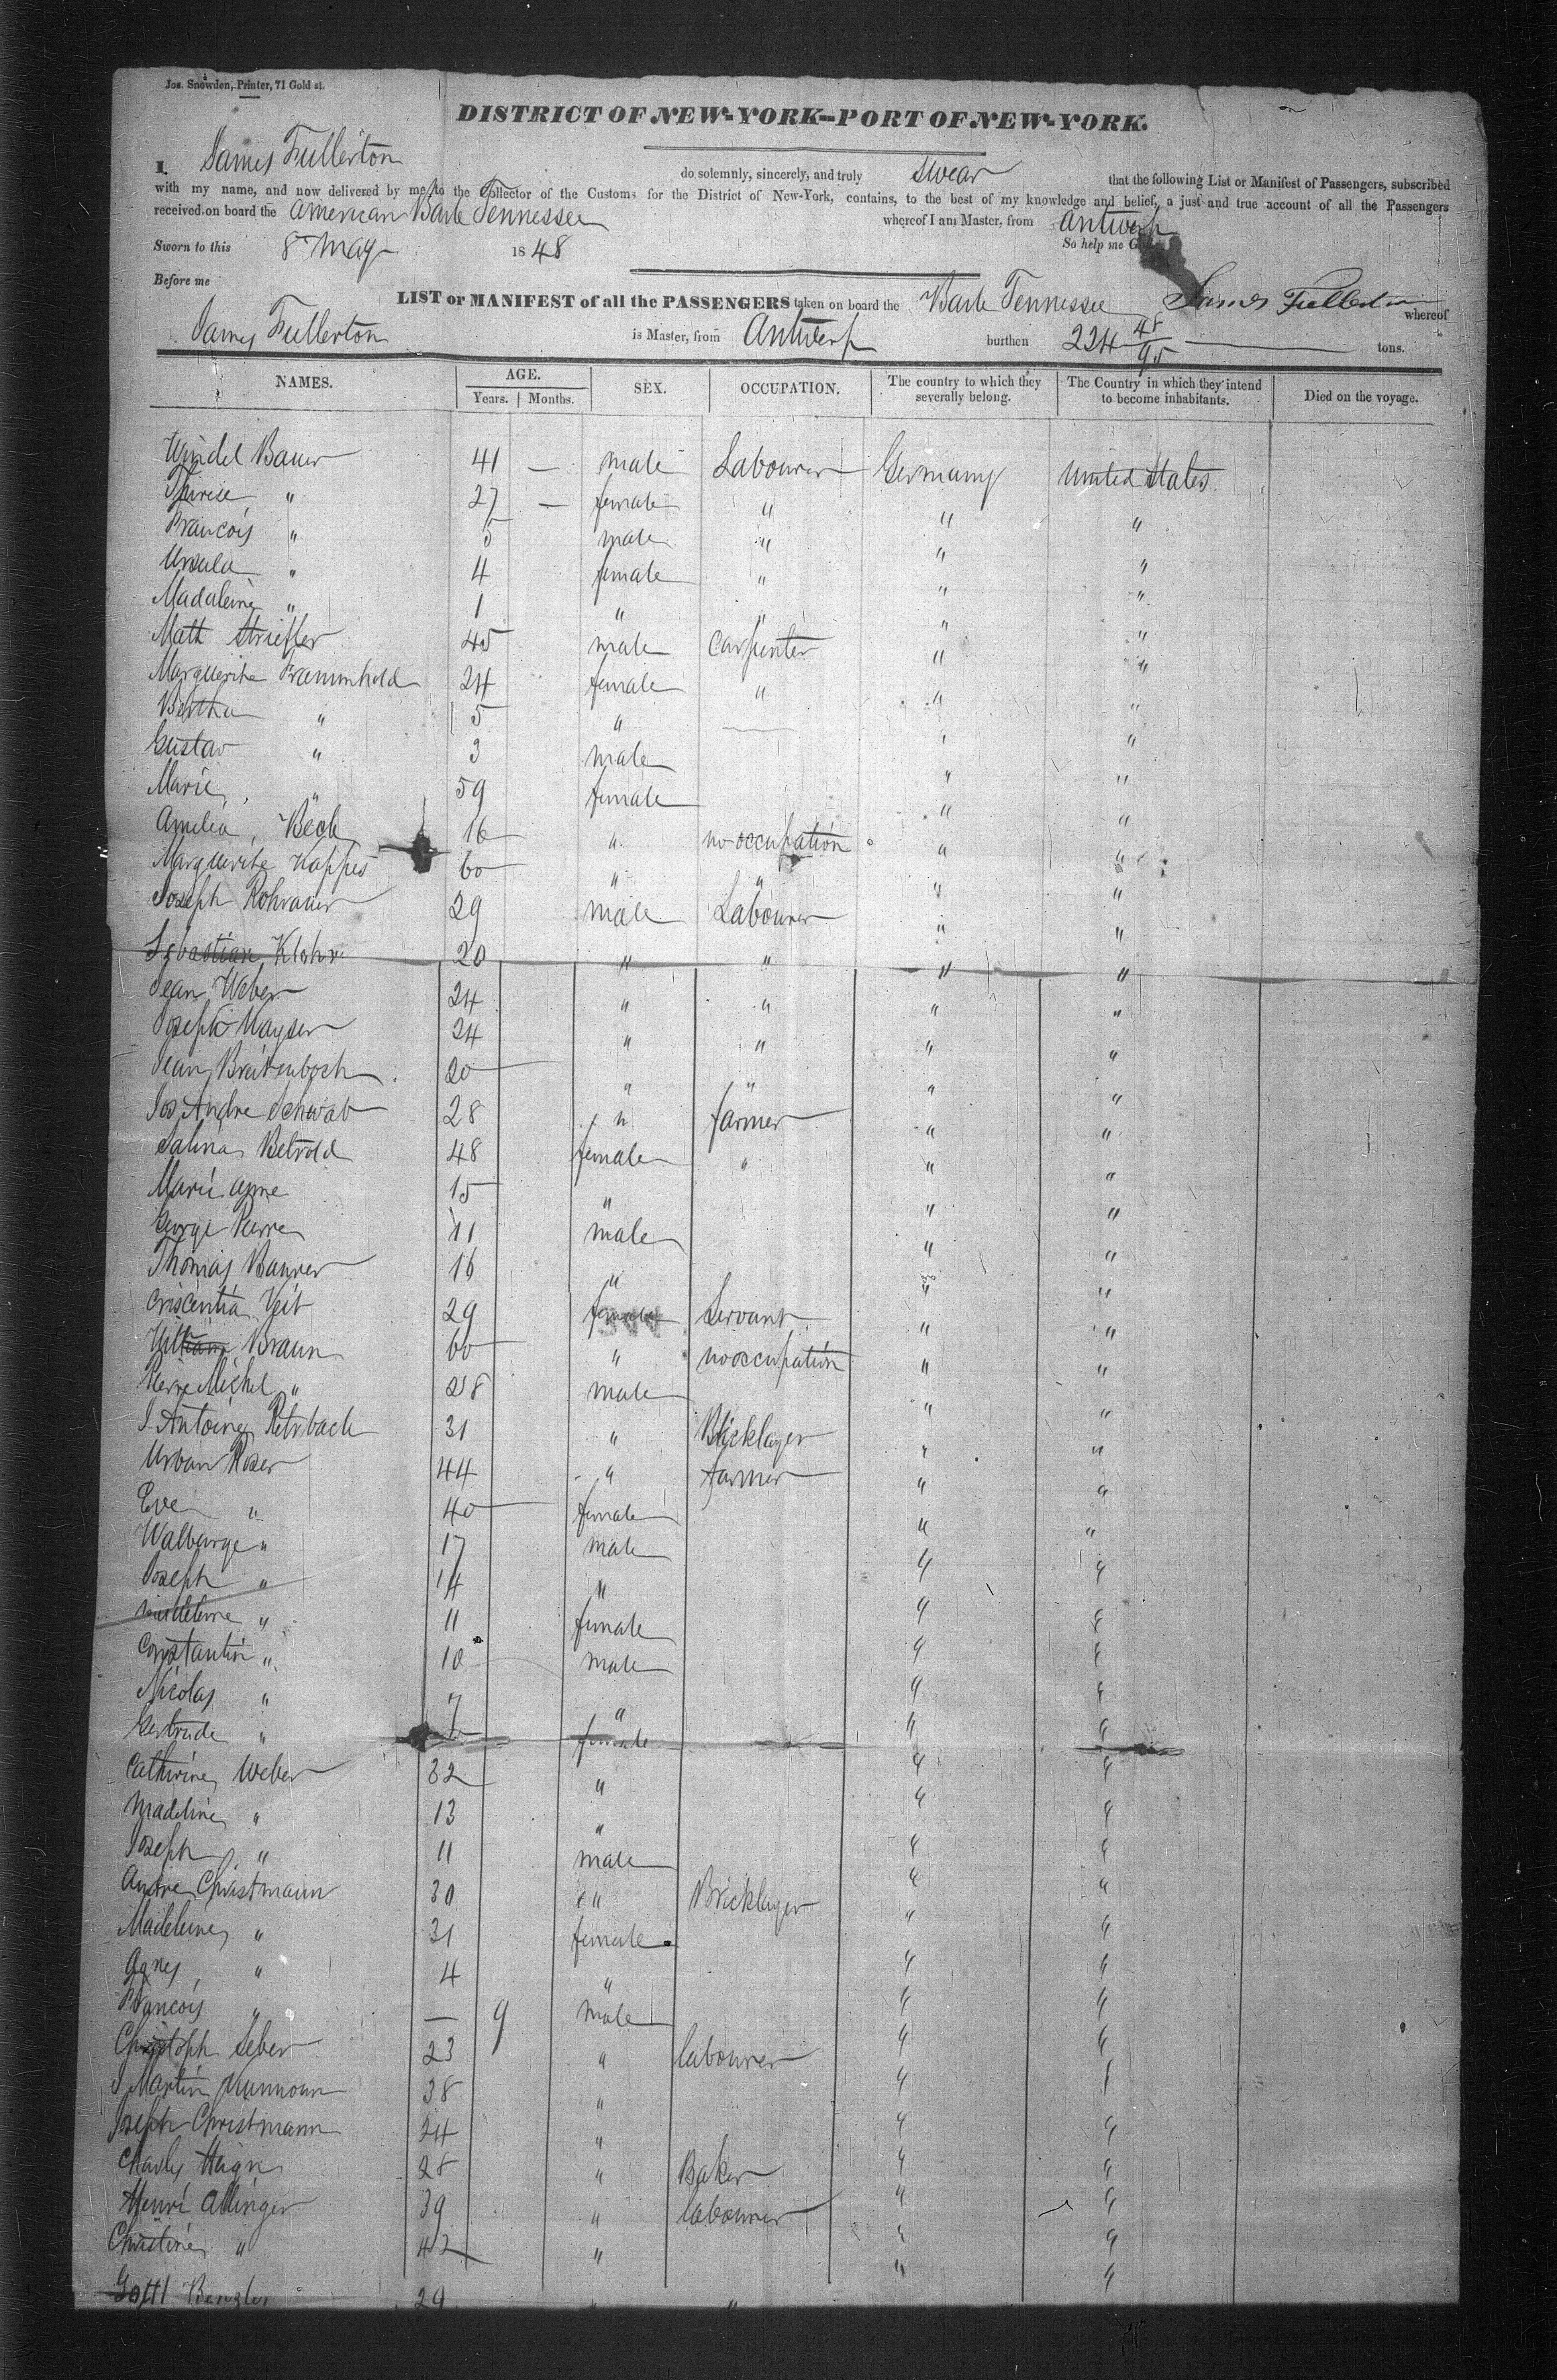 Jos. Snowden, Printer, 71 Gold st.
DISTRICT OF NEW-YORK--PORT OF NEW-YORK.
I. James Fullerton do solemnly, sincerely, and truly swear that the following List or Manifest of Passengers, subscribed
with my name, and now delivered by me to the Collector of the Customs for the District of New-York, contains, to the best of my knowledge and belief, a just and true account of all the Passengers
received on board the American Bark Tennessee whereof I am Master, from Antwerp
Sworn to this 8 May 1848 So help me
Before me James Fullerton
LIST or MANIFEST of all the PASSENGERS taken on board the Bark Tennessee whereof
James Fullerton is Master, from Antwerp burthen 224 48/95 tons.
NAMES. AGE. Years. Months. SEX. OCCUPATION. The country to which they severally belong. The Country in which they intend to become inhabitants. Died on the voyage.
Windel Bauer 41 — male Labourer Germany United States
Therese " 27 — female " " "
Francois " 5 male " " "
Ursula " 4 female " " "
Madaleine " 1 " " " "
Math Strieffer 45 male Carpenter " "
Marguerite 24 female " " "
Bertha " 5 " — " "
Gustav " 3 male " "
Marie " 59 female " "
Amelia Beck 16 " no occupation " "
Marguerite Kappes 60 " " " "
Joseph Rohrauer 29 male Labourer " "
Sebastian Klohr 20 " " " "
Jean Weber 24 " " " "
Joseph Kayser 24 " " " "
Jean Breitenbach 20 " " " "
Jos. Andre Schwab 28 " farmer " "
Salina Betrold 48 female " " "
Marie Anne 15 " " "
George Pierre 11 male " "
Thomas Baurer 16 " " "
Criscentia Veit 29 female Servant " "
Braun 60 " no occupation " "
Pierre Michel " 28 male " "
J. Antoine 31 " Bricklayer " "
Urban Roser 44 " farmer " "
Eve " 40 female " "
Walburge " 17 male " "
Joseph " 14 " " "
Madeleine " 11 female " "
Constantin " 10 male " "
Nicolas " 7 " " "
Gertrude " female " "
Catherine Weber 32 " " "
Madeline " 13 " " "
Joseph " 11 male " "
Andre Christmann 30 " Bricklayer " "
Madeleine " 31 female " "
Agnes " 4 " " "
Francois " — 9 male " "
Christoph Seber 23 " labourer " "
J Martin 38 " " "
Joseph Christmann 24 " " "
Charles 28 " Baker " "
Henri Allinger 39 " labourer " "
Christine " 42 " " "
Gottl 29 " "